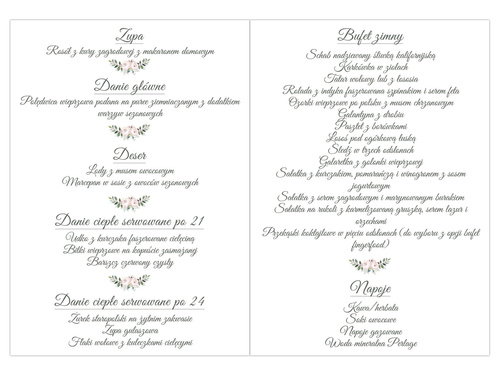 Zupa
Rosół z kury zagrodowej z makaronem domowym
Danie główne
Polędwica wieprzowa podana na puree ziemniaczanym z dodatkiem
warzyw sezonowych
Deser
Lody z musem owocowym
Marcepan w sosie z owoców sezonowych
Danie ciepłe serwowane po 21
Udko z kurczaka faszerowane cielęciną
Bitki wieprzowe na kapuście zasmażanej
Barszcz czerwony czysty
Danie ciepłe serwowane po 24
Żurek staropolski na żytnim zakwasie
Zupa gulaszowa
Flaki wołowe z kuleczkami cielęcymi
Bufet zimny
Schab nadziewany śliwką kalifornijską
Karkówka w ziołach
Tatar wołowy lub z łososia
Rolada z indyka faszerowana szpinakiem i serem feta
Ozorki wieprzowe po polsku z musem chrzanowym
Galantyna z drobiu
Pasztet z borówkami
Łosoś pod ogórkową łuską
Śledź w trzech odsłonach
Galaretka z golonki wieprzowej
Sałatka z kurczakiem, pomarańczą i winogronem z sosem
jogurtowym
Sałatka z serem zagrodowym i marynowanym burakiem
Sałatka na rukoli z karmelizowaną gruszką, serem lazur i
orzechami
Przekąski koktajlowe w pięciu odsłonach (do wyboru z opcji bufet
fingerfood)
Napoje
Kawa/herbata
Soki owocowe
Napoje gazowane
Woda mineralna Perlage